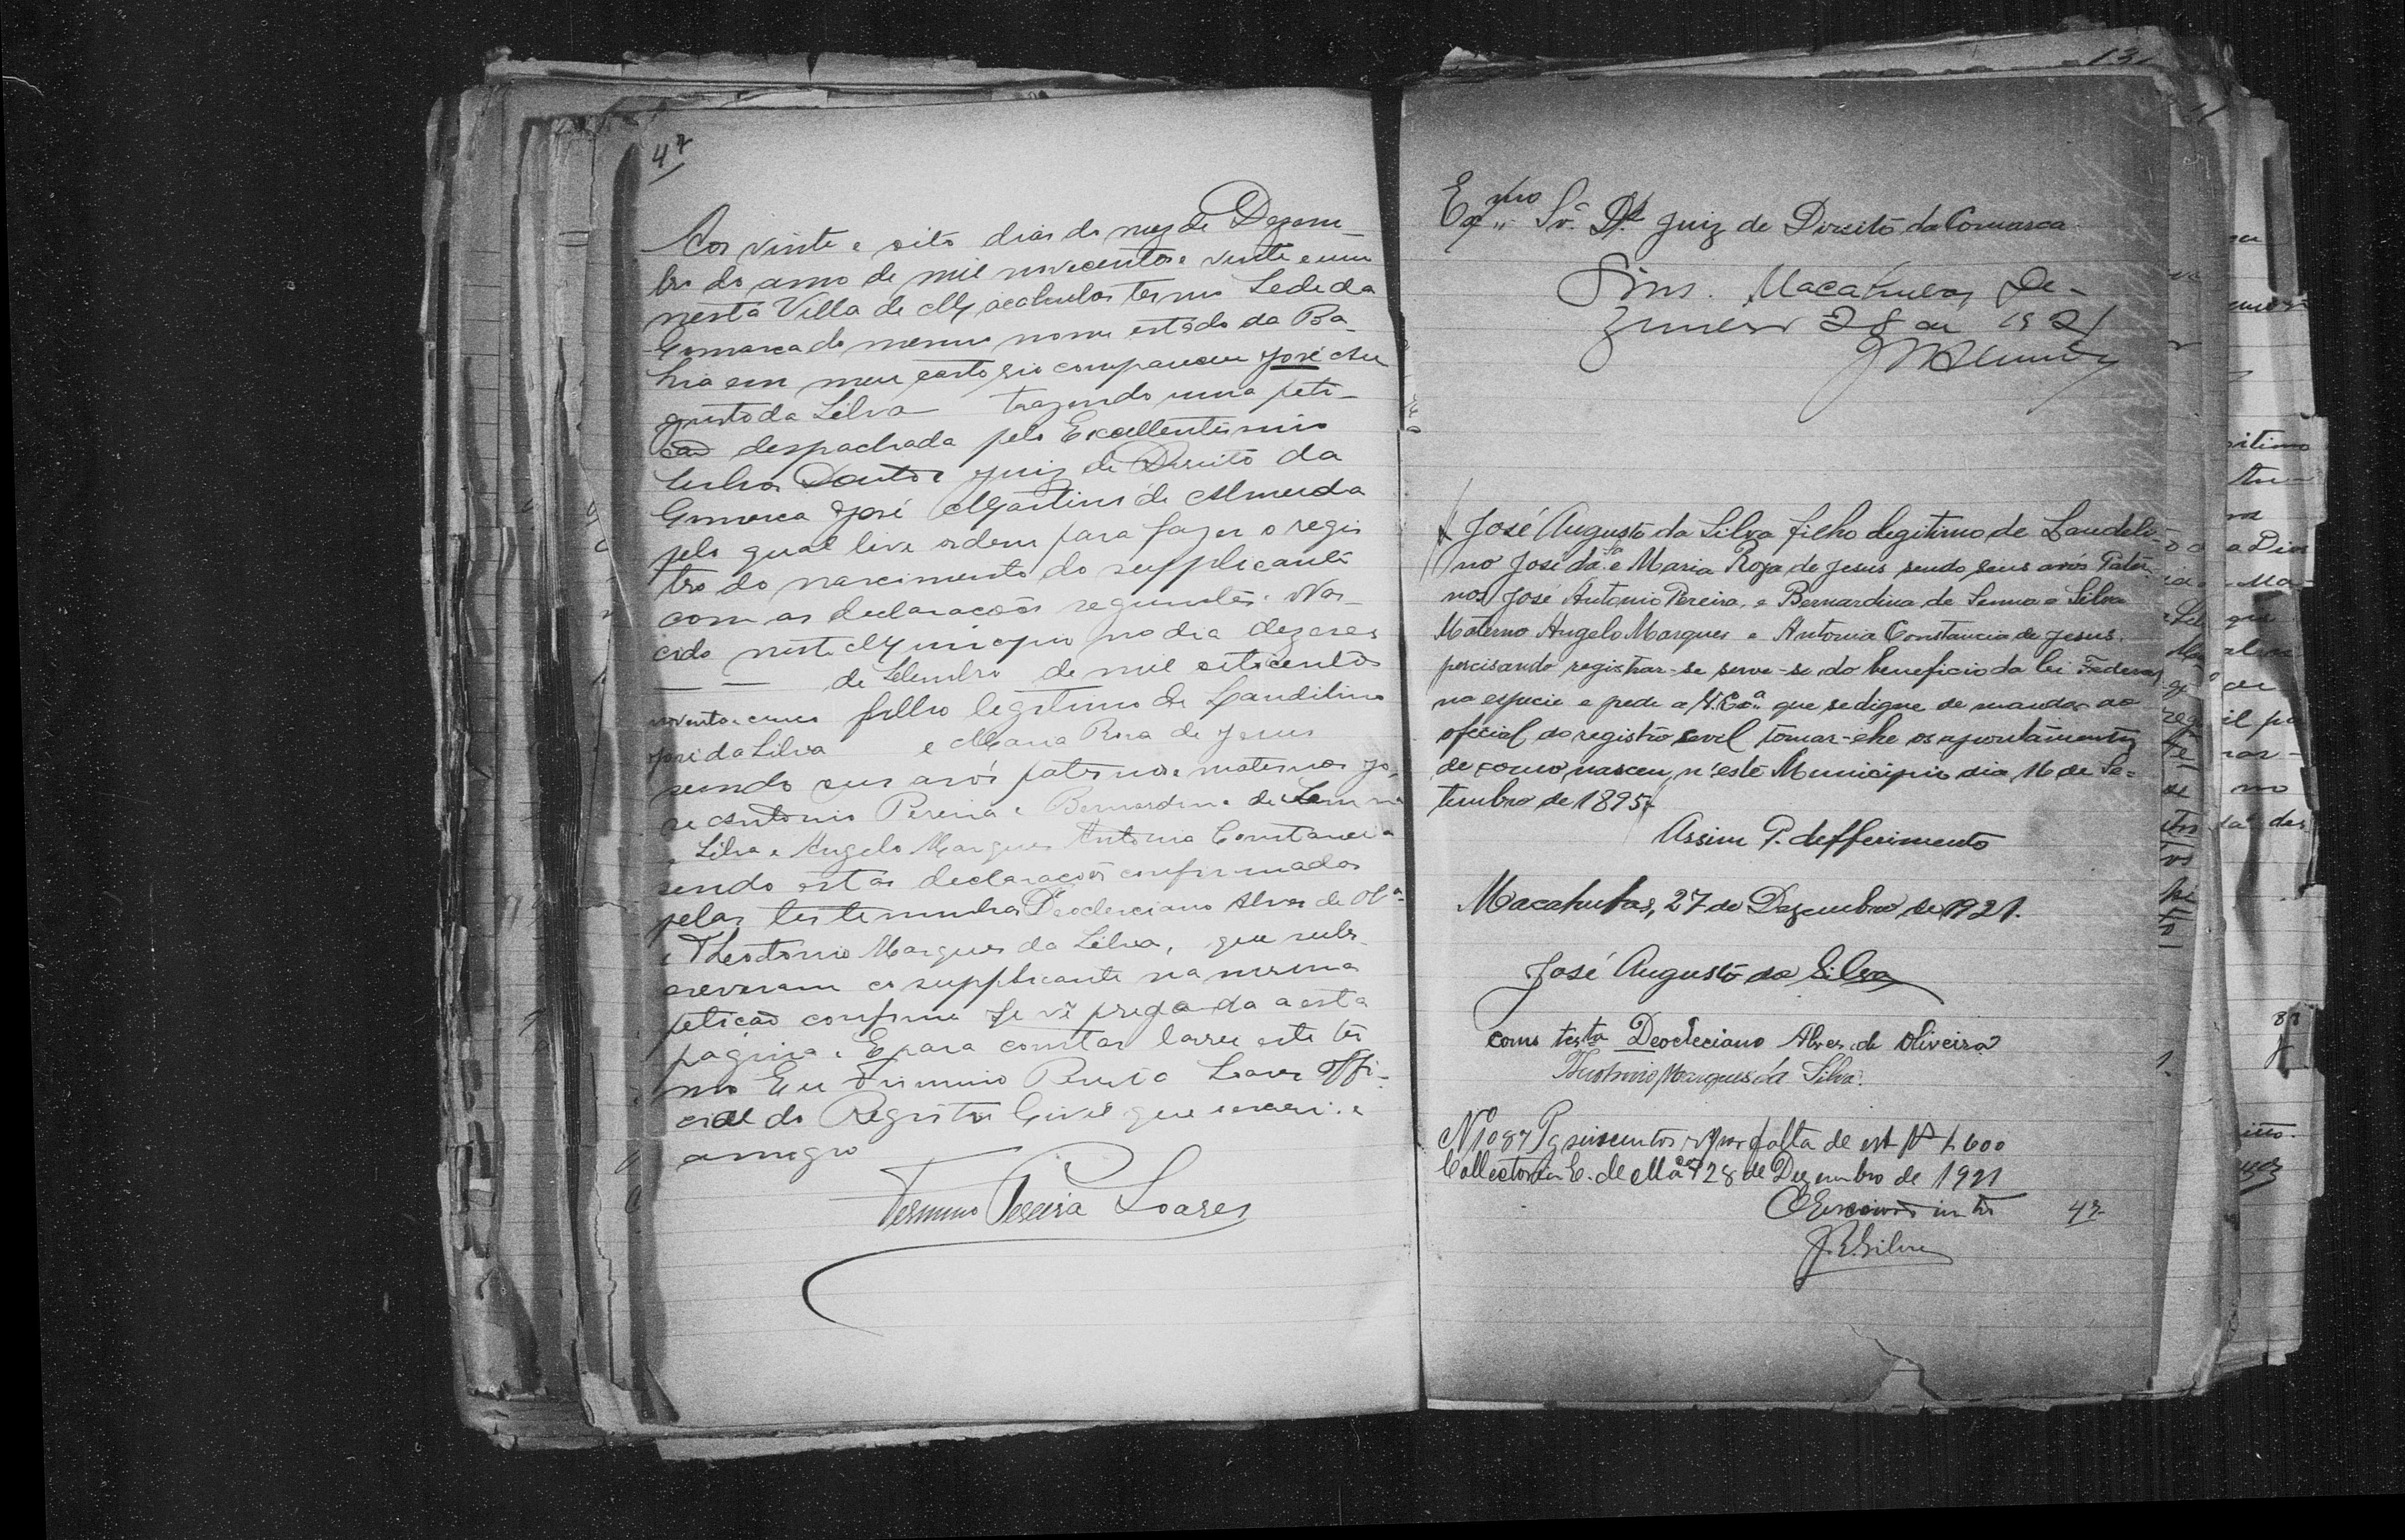 47
Aos vinte e oito dias do mez de Dezem-
bro do anno de mil novecentos e vinte e um
nesta Villa de Macahubas termo Sede da
Comarca do mesmo nome estado da Ba-
hia em meu cartorio compareceu José Au
gusto da Silva trazendo uma peti-
cão despachada pelo Excellentissimo
Senhor Doutor Juiz de Direito da
Comarca José Martins de Almeida
pelo qual tive ordem para fazer o regis
tro do nascimento do supplicante
com as declaracões seguintes. Nas-
cido neste Municipio no dia dezeseis
de Setembro de mil oitocentos
noventa e cinco filho legitimo de Laudilino
José da Silva e Maria Rosa de Jesus
sendo seus avós paternos e maternos Jo-
se Antonio Pereira e Bernardina de Senna
e Silva e Angelo Marques Antonia Constancia
sendo estas declaracões confirmadas
pelas testemunhas Deocleciano Alves de Olª
e Theotonio Marques da Silva, que subs-
creveram co supplicante na mesma
peticão conforme se vê pregada a esta
pagina. E para constar lavrei este ter
mo Eu Firmino Pereira Soares Offi-
cial do Registro Civil que escrevi e
assigno
Firmino Pereira Soares
13
Exmo Sr. Dr. Juiz de Direito da Comarca
Sim. Macahubas De-
zembro 28 de 1921
JMAlmeida
José Augusto da Silva filho legitimo de Laudeli-
no José da Sª e Maria Roza de Jesus sendo seus avós Pater-
nos José Antonio Pereira, e Bernardina de Senna e Silva
Materno Angelo Marques e Antonia Constancia de Jesus.
percisando registrar-se serve-se do beneficio da lei Federal
na especie e pede a V. Exª que se digne de mandar ao
oficial do registro sevel tomar-ehe os apontamentos
de como nasceu, n'este Municipio dia 16 de Se-
tembro de 1895.
Assim P. defferimento
Macahubas, 27 de Dezembro de 1921.
José Augusto da Silva
como testa Deocleciano Alves de Oliveira
Theotonio Marques da Silva.
Nº 1087 Pg seiscentos rs por falta de est $600
Collectoria E. de Macas 28 de Dezembro de 1921
O Escrivão int
J. E. Silva
47